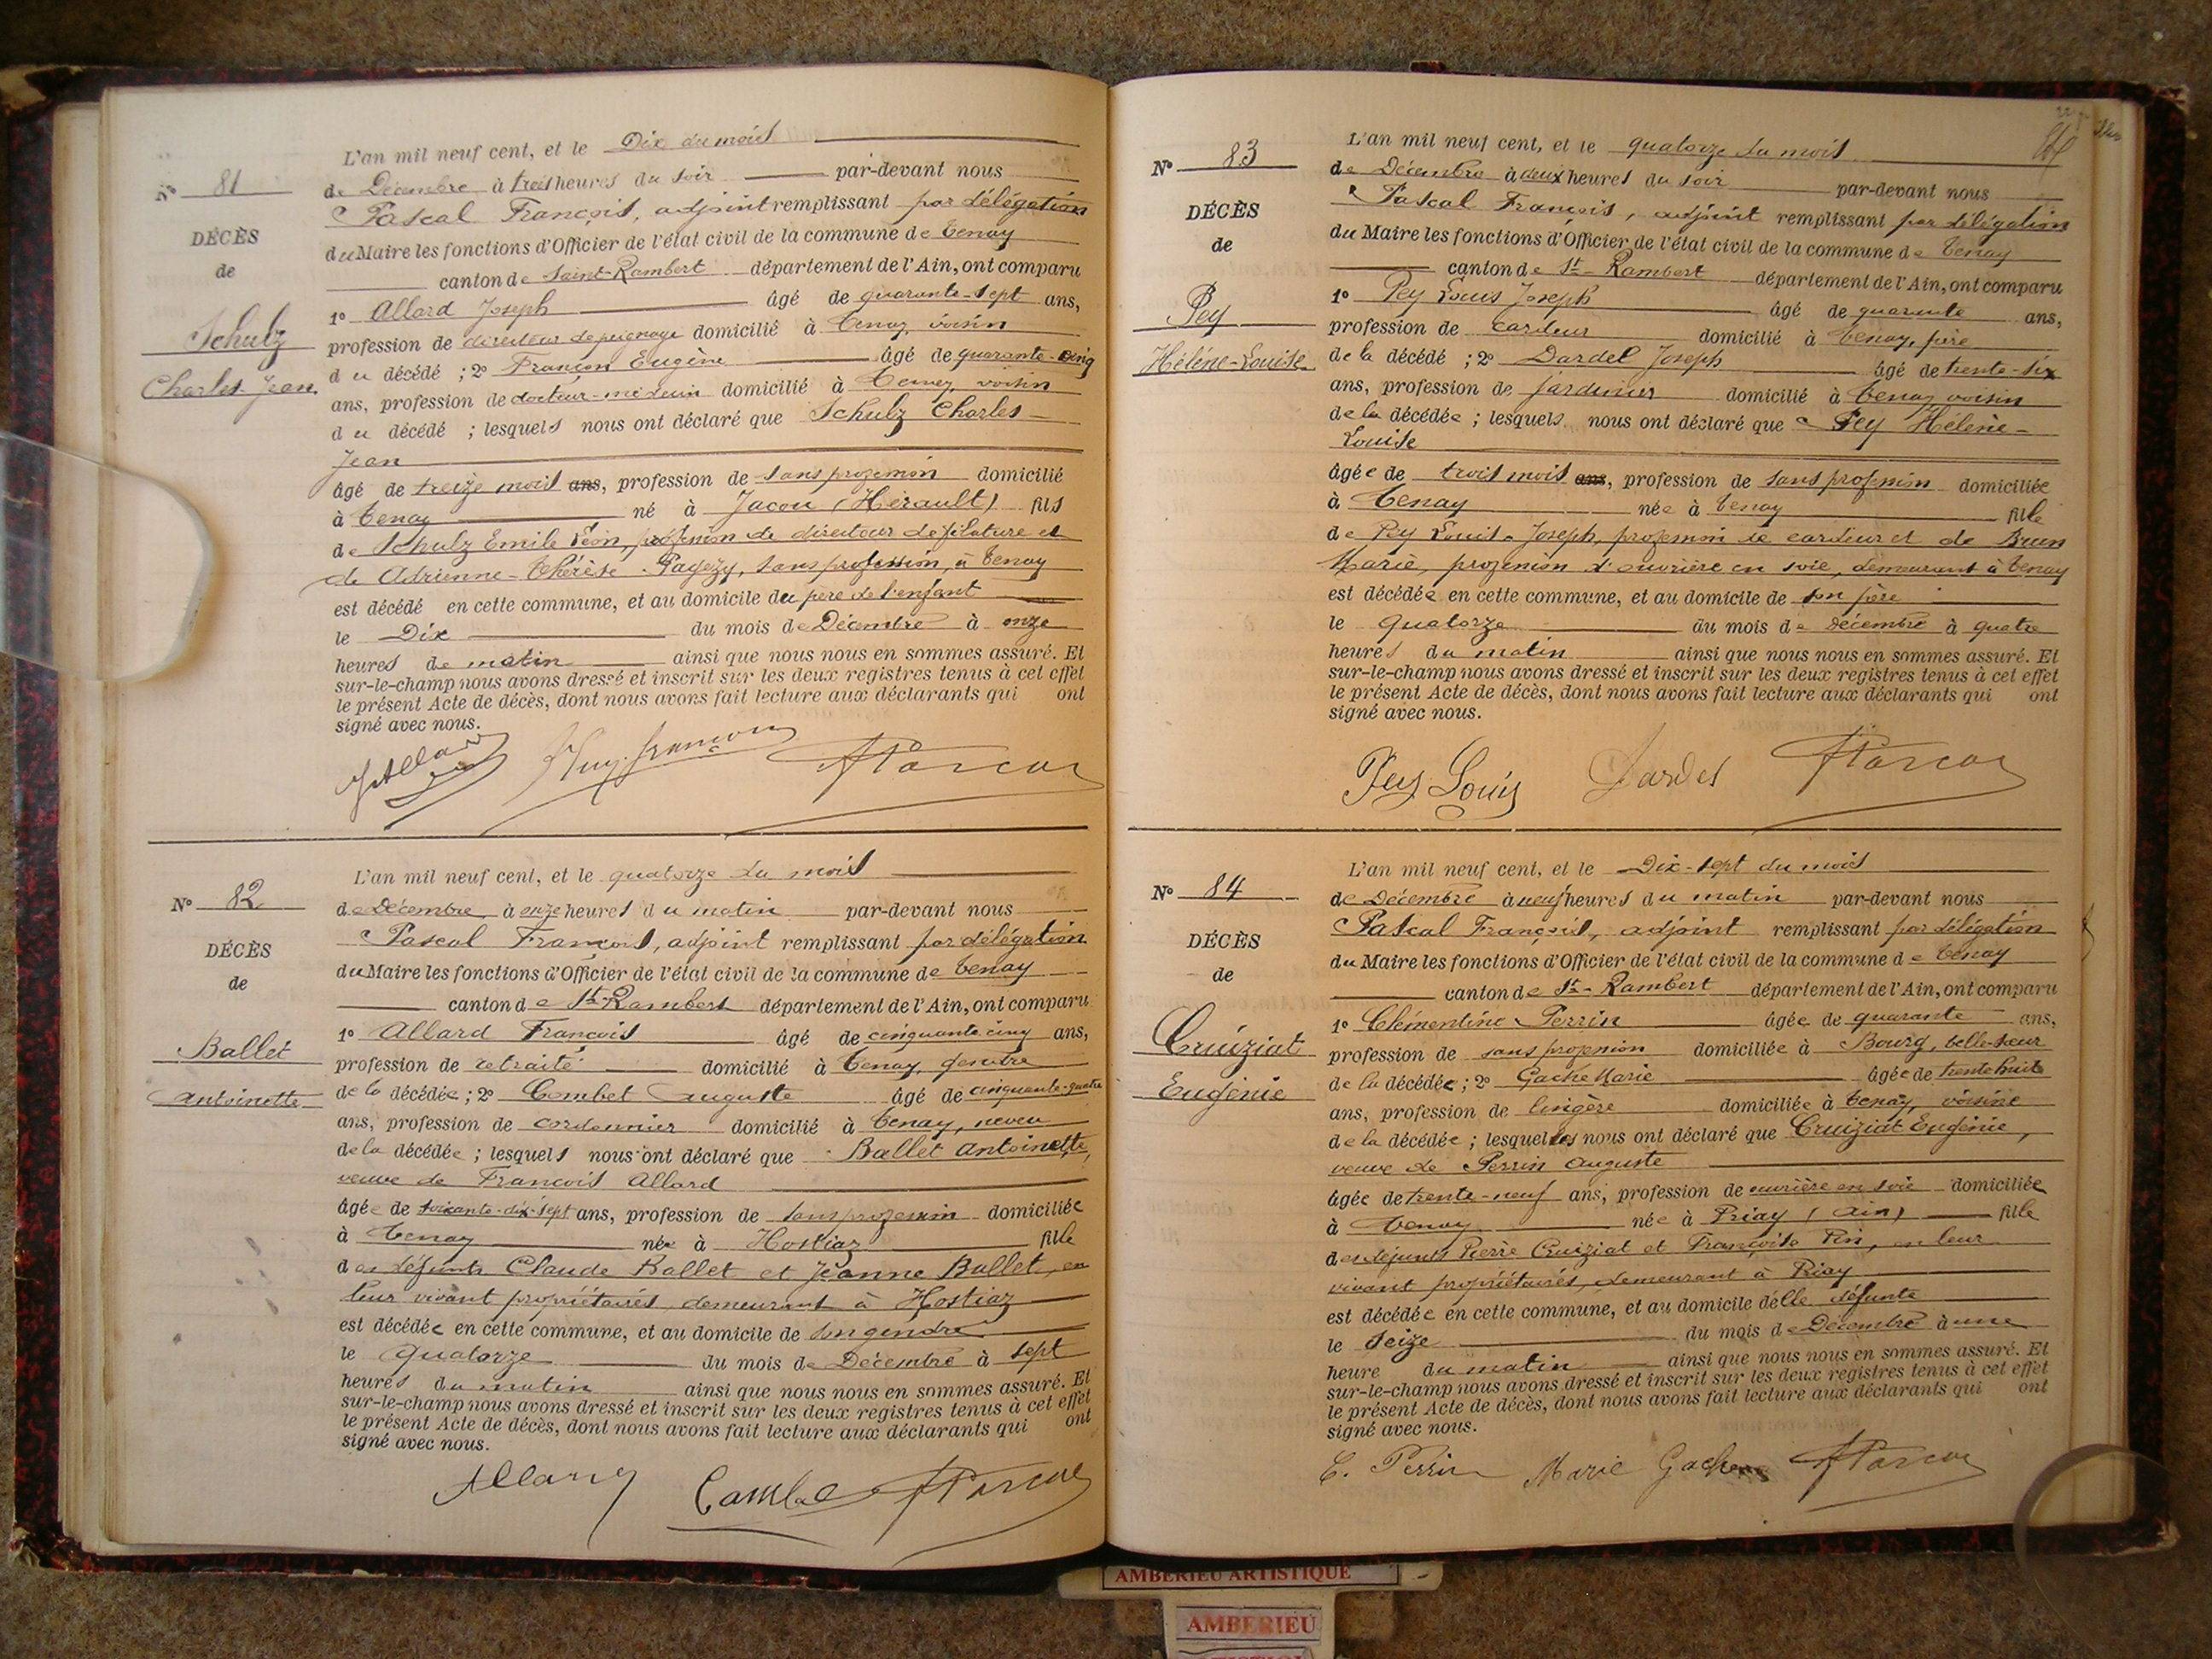 L'an mil neuf cent, et le Dix du mois
N° 81
de Décembre à trois heures du soir par-devant nous
Pascal François, adjoint remplissant par délégation
DÉCÈS
du Maire les fonctions d'Officier de l'état civil de la commune de Tenay
de
canton de Saint-Rambert département de l'Ain, ont comparu
1° Allard Joseph âgé de quarante-sept ans,
Schulz
profession de directeur de peignage domicilié à Tenay, voisin
Charles Jean
du décédé ; 2° Françon Eugène âgé de quarante-cinq
ans, profession de docteur-médecin domicilié à Tenay, voisin
du décédé ; lesquels nous ont déclaré que Schulz Charles-
Jean
âgé de treize mois ans, profession de sans profession domicilié
à Tenay né à Jacou (Hérault) fils
de Schulz Emile Léon, profession de directeur de filature et
de Adrienne-Thérèse Pagézy, sans profession, à Tenay
est décédé en cette commune, et au domicile du père de l'enfant
le Dix du mois de Décembre à onze
heures de matin ainsi que nous nous en sommes assuré. Et
sur-le-champ nous avons dressé et inscrit sur les deux registres tenus à cet effet
le présent Acte de décès, dont nous avons fait lecture aux déclarants qui ont
signé avec nous.
L'an mil neuf cent, et le quatorze du mois
N° 82
de Décembre à onze heures du matin par-devant nous
Pascal François, adjoint remplissant par délégation
DÉCÈS
du Maire les fonctions d'Officier de l'état civil de la commune de Tenay
de
canton de St-Rambert département de l'Ain, ont comparu
1° Allard François âgé de cinquante cinq ans,
Ballet
profession de retraité domicilié à Tenay, gendre
Antoinette
de la décédée ; 2° Combet Auguste âgé de cinquante-quatre
ans, profession de cordonnier domicilié à Tenay, neveu
de la décédée ; lesquels nous ont déclaré que Ballet Antoinette,
veuve de François Allard
âgée de soixante-dix-sept ans, profession de sans profession domiciliée
à Tenay née à Hostiaz fille
des défunts Claude Ballet et Jeanne Ballet, en
leur vivant propriétaires, demeurant à Hostiaz
est décédée en cette commune, et au domicile de son gendre
le quatorze du mois de Décembre à sept
heures du matin ainsi que nous nous en sommes assuré. Et
sur-le-champ nous avons dressé et inscrit sur les deux registres tenus à cet effet
le présent Acte de décès, dont nous avons fait lecture aux déclarants qui ont
signé avec nous.
Allard Combet
L'an mil neuf cent, et le quatorze du mois
N° 83
de Décembre à deux heures du soir par-devant nous
Pascal François, adjoint remplissant par délégation
DÉCÈS
du Maire les fonctions d'Officier de l'état civil de la commune de Tenay
de
canton de St-Rambert département de l'Ain, ont comparu
1° Pey Louis Joseph âgé de quarante ans,
Pey
profession de cardeur domicilié à Tenay, père
Hélène-Louise
de la décédé ; 2° Dardel Joseph âgé de trente-six
ans, profession de jardinier domicilié à Tenay, voisin
de la décédée ; lesquels nous ont déclaré que Pey Hélène-
Louise
âgée de trois mois ans, profession de sans profession domiciliée
à Tenay née à Tenay fille
de Pey Louis-Joseph, profession de cardeur et de Brun
Marie, profession d'ouvrière en soie, demeurant à Tenay
est décédée en cette commune, et au domicile de son père
le quatorze du mois de Décembre à quatre
heures du matin ainsi que nous nous en sommes assuré. Et
sur-le-champ nous avons dressé et inscrit sur les deux registres tenus à cet effet
le présent Acte de décès, dont nous avons fait lecture aux déclarants qui ont
signé avec nous.
Pey Louis Dardel
L'an mil neuf cent, et le Dix-sept du mois
N° 84
de Décembre à neuf heures du matin par-devant nous
Pascal François, adjoint remplissant par délégation
DÉCÈS
du Maire les fonctions d'Officier de l'état civil de la commune de Tenay
de
canton de St-Rambert département de l'Ain, ont comparu
1° Clémentine Perrin âgée de quarante ans,
Cruiziat
profession de sans profession domiciliée à Bourg, belle-sœur
Eugénie
de la décédée ; 2° Gache Marie âgée de trente huit
ans, profession de lingère domiciliée à Tenay, voisine
de la décédée ; lesquelles nous ont déclaré que Cruiziat Eugénie,
veuve de Perrin Auguste
âgée de trente-neuf ans, profession de ouvrière en soie domiciliée
à Tenay née à Priay (Ain) fille
des défunts Pierre Cruiziat et Françoise Pin, en leur
vivant propriétaires, demeurant à Priay
est décédée en cette commune, et au domicile de lle défunte
le Seize du mois de Décembre à une
heure du matin ainsi que nous nous en sommes assuré. Et
sur-le-champ nous avons dressé et inscrit sur les deux registres tenus à cet effet
le présent Acte de décès, dont nous avons fait lecture aux déclarants qui ont
signé avec nous.
C. Perrin Marie Gache
AMBERIEU ARTISTIQUE
AMBERIEU